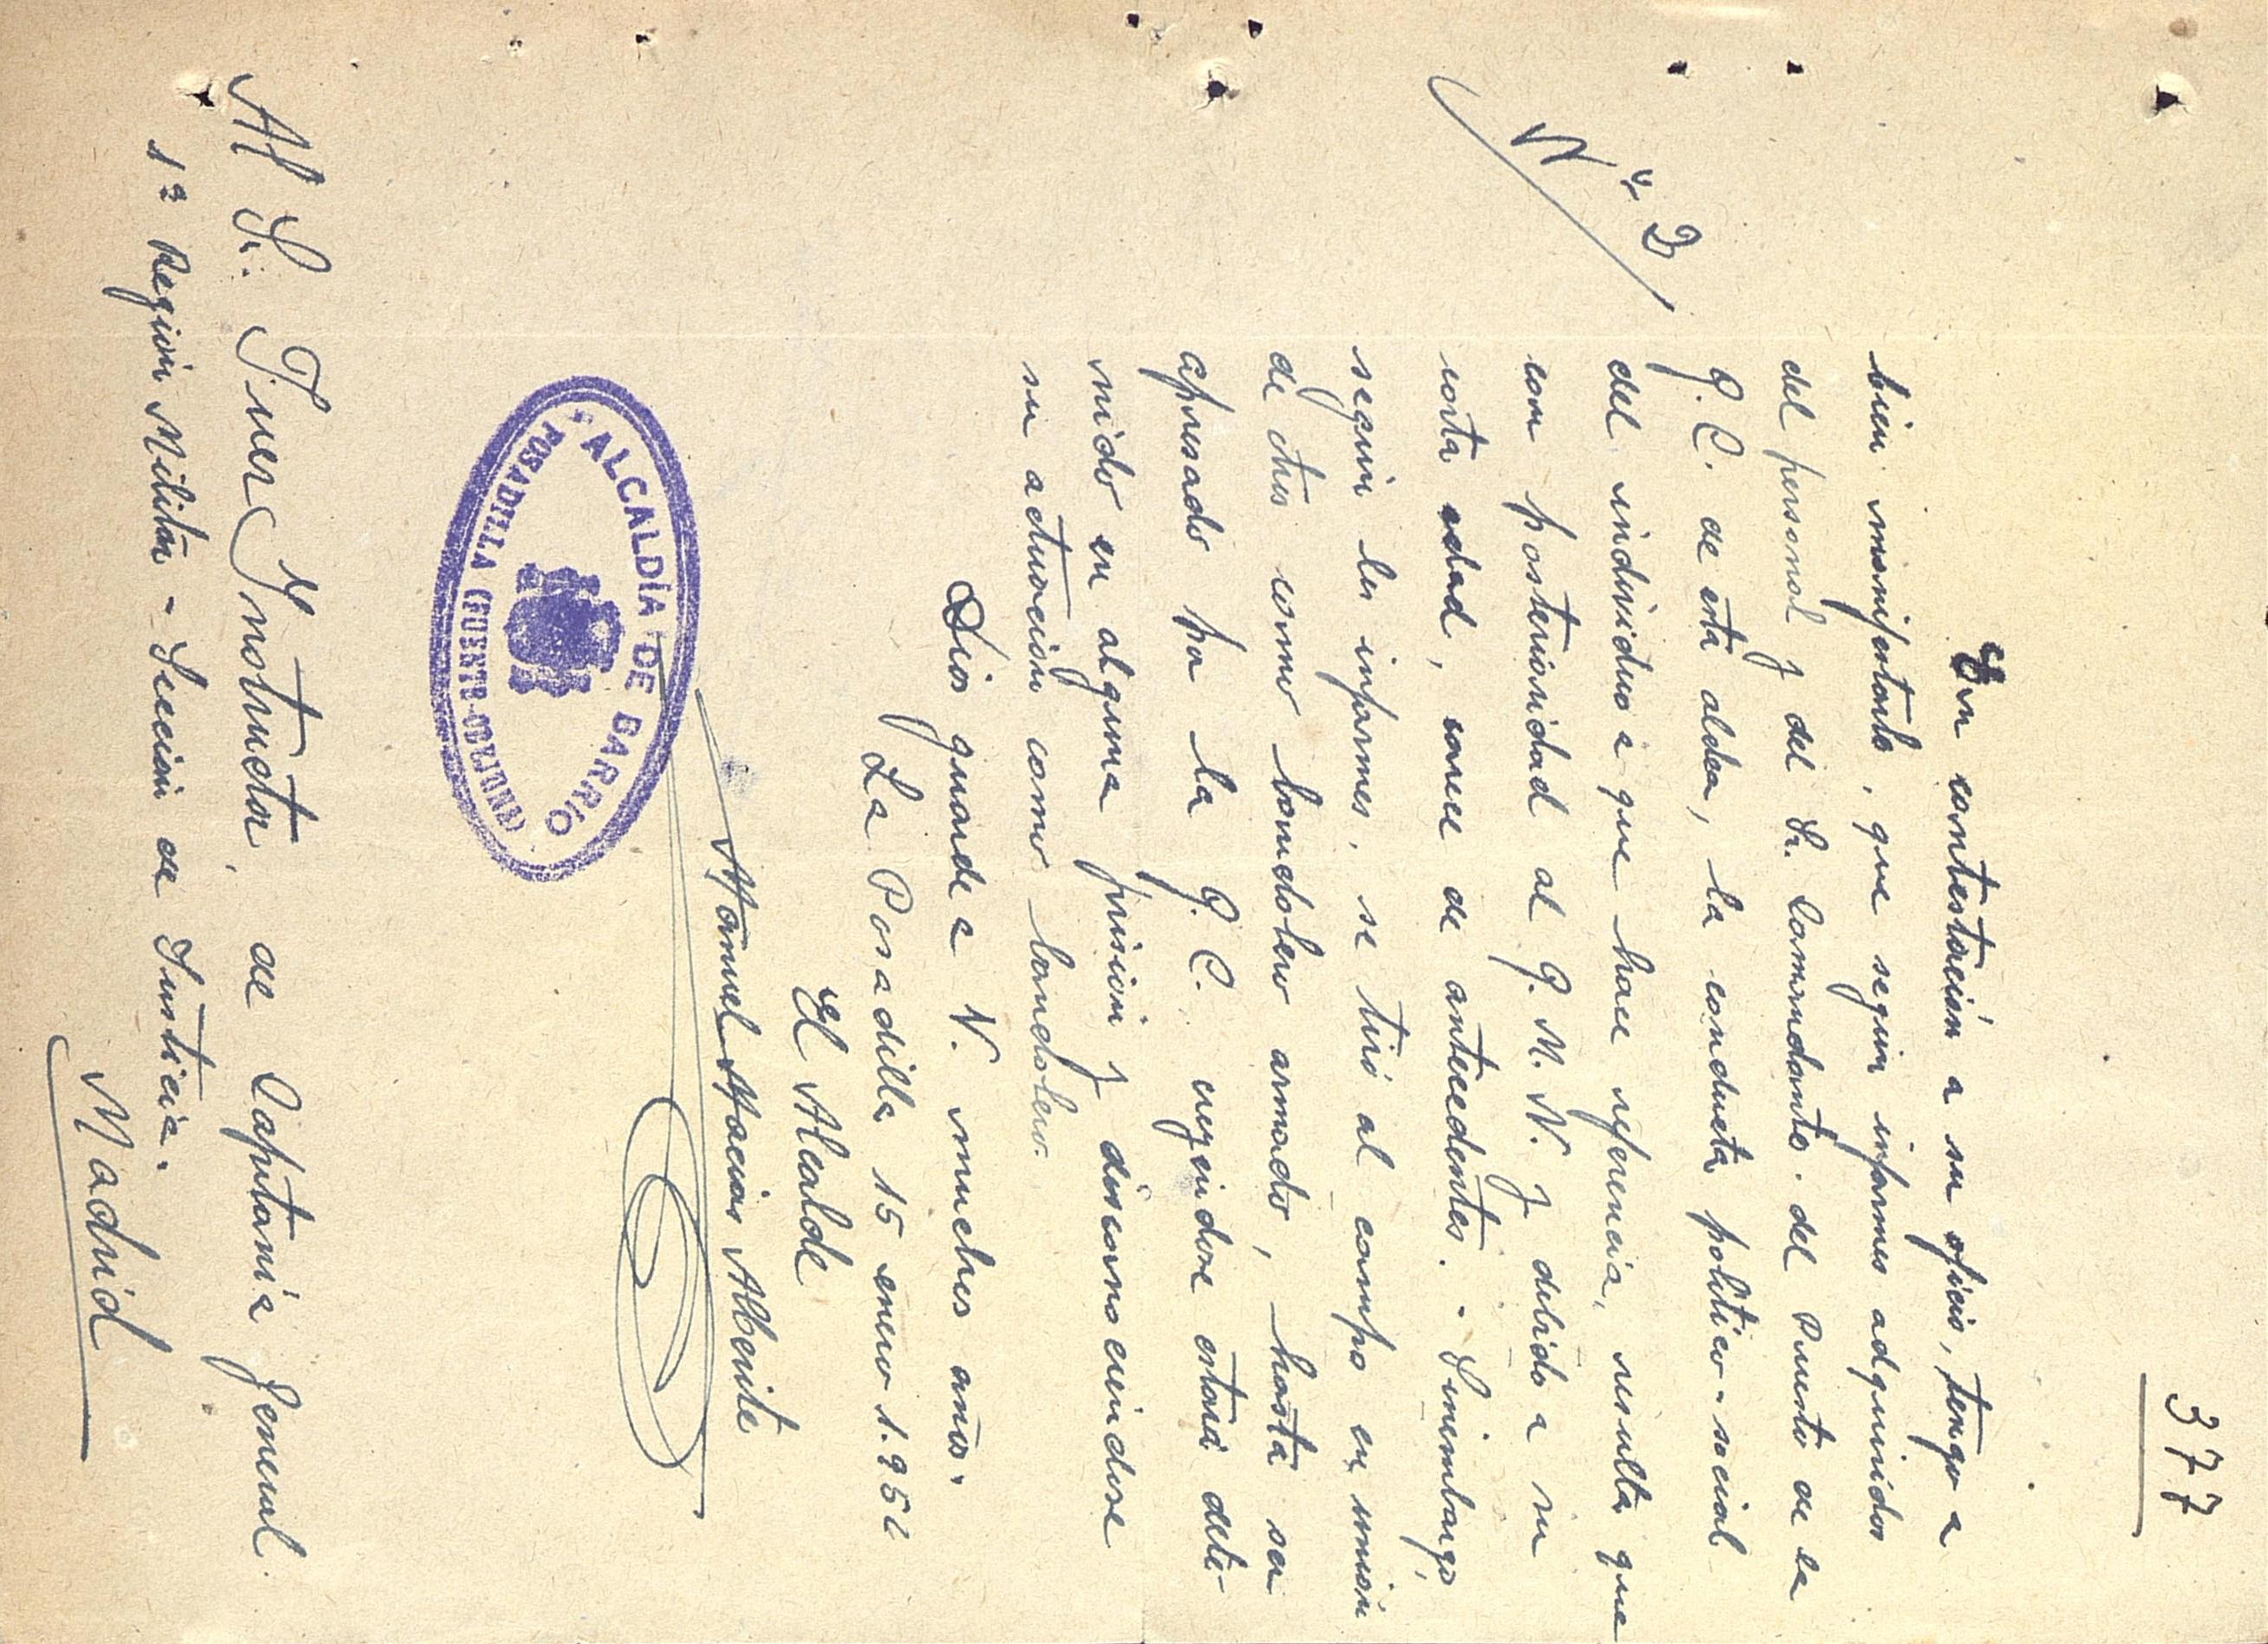 377
Nº 2
En contestación a su oficio, tengo a
bien manifestarle, que según informes adquiridos
del personal y del Sr. Comandante. del Puesto de la
G. C. de esta aldea, la conducta politico-social
del individuo a que hace referencia, resulta que
con posterioridad al G. M. N. y debido a su
corta edad, carece de antecedentes. - Sinembargo,
según les informes, se tiró al campo en unión
de otros como bandolero armado, hasta ser
apresado por la G. C. creyendose estará dete-
nido en alguna prisión y desconociendose
su actuación como bandolero.
Dios guarde a V. muchos años.
La Posadilla 15 enero 1.95
El Alcalde
Manuel Macias
ALCALDÍA DE BARRIO
POSADILLA (FUENTE-OBEJUNA)
Al Sr. Juez Instructor, de Capitanía General.
1ª Región Militar - Sección de Justicia.
Madrid